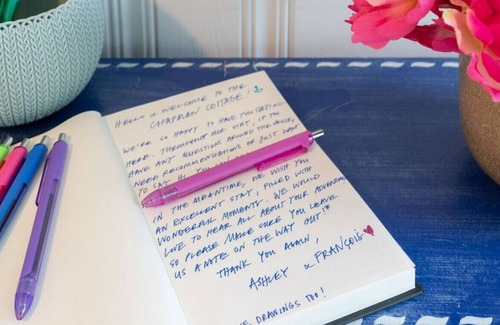 HELLO & WELCOME TO THE
CHAPMAN COTTAGE!
WE'RE SO HAPPY TO HAVE YOU STAYING
HERE. THROUGHOUT OUR VISIT, IF YOU
HAVE ANY QUESTIONS AROUND THE HOUSE,
NEED RECOMMENDATIONS OR JUST WANT
TO SAY HI
IN THE MEANTIME, WE WISH YOU
AN EXCELLENT STAY, FILLED WITH
WONDERFUL MOMENTS. WE WOULD
LOVE TO HEAR ALL ABOUT YOUR ADVENTURES
SO PLEASE MAKE SURE YOU LEAVE
US A NOTE ON THE WAY OUT!*
THANK YOU AGAIN,
ASHLEY & FRANÇOIS
DRAWINGS TOO!